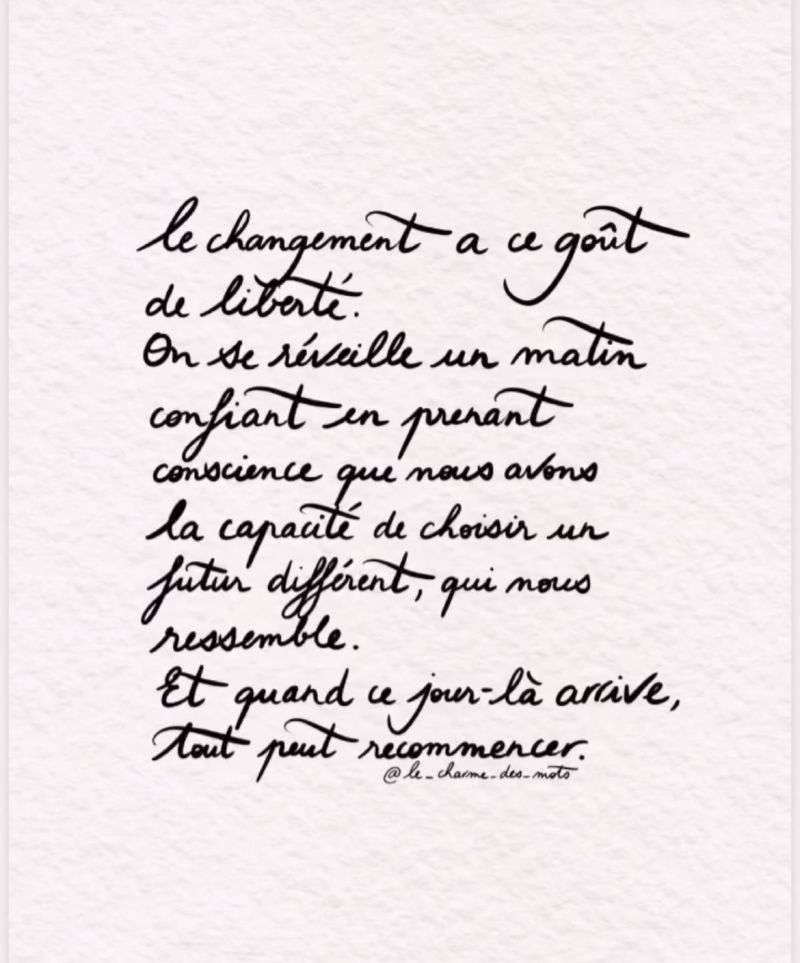 le changement a ce goût
de liberté.
On se réveille un matin
confiant en prenant
conscience que nous avons
la capacité de choisir un
futur différent, qui nous
ressemble.
Et quand ce jour-là arrive,
tout peut recommencer.
@le_charme_des_mots